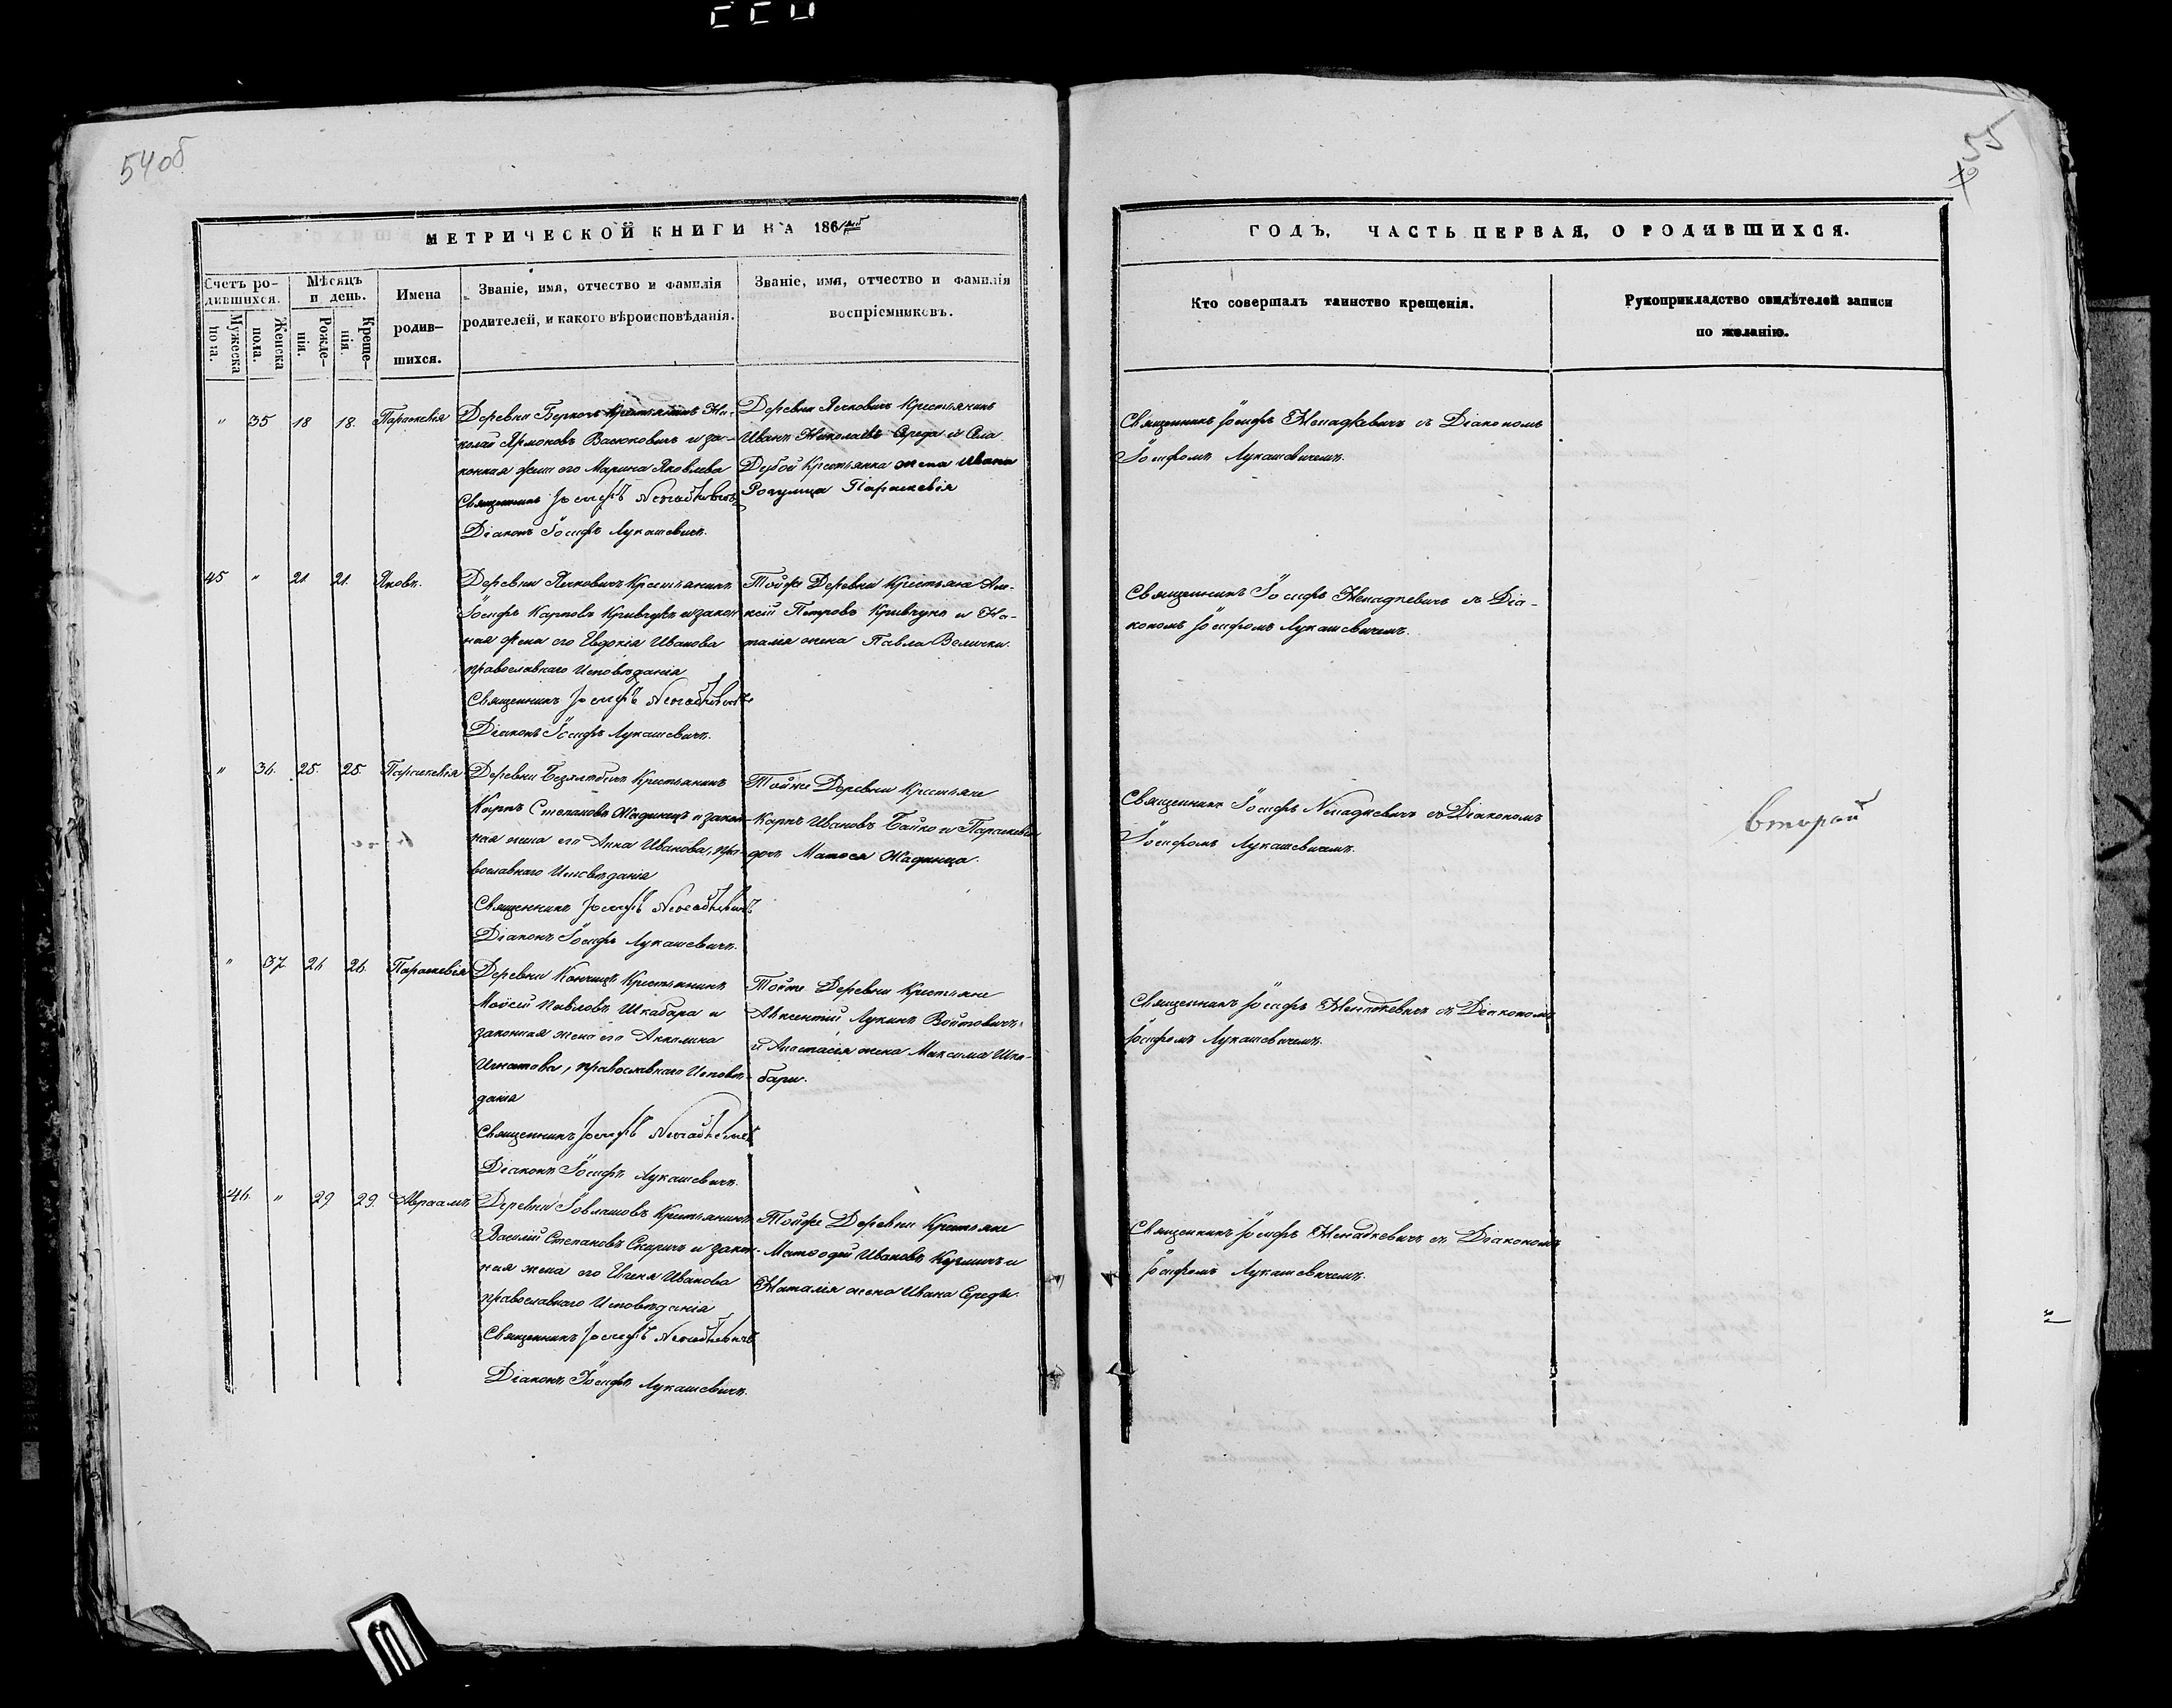 54об
55
МЕТРИЧЕСКОЙ КНИГИ НА 186
ГОДЪ, ЧАСТЬ ПЕРВАЯ, О РОДИВШИХСЯ.
Счетъ ро-
дившихся.
Мужеска
пола.
Женска
пола.
Мѣсяцъ
и день.
Рожде-
нія.
Креще-
нія.
Имена
родив-
шихся.
Званіе, имя, отчество и фамилія
родителей, и какого вѣроисповѣданія.
Званіе, имя, отчество и фамилія
воспріемниковъ.
Кто совершалъ таинство крещенія.
Рукоприкладство свидѣтелей записи
по желанію.
" 35 18 18. Параскевія
Деревни Крестьянинъ Ни-
колай Васюковичъ и за-
конная жена его Марина Яковлева
Священникъ Іосифъ Ненадкевичъ
Діаконъ Іосифъ Лукашевичъ.
Деревни Крестьянинъ
Иванъ Николаевъ Середа и Села
Дубой Крестьянка жена Ивана
Параскевія
Священникъ Іосифъ Ненадкевичъ съ Діакономъ
Іосифомъ Лукашевичемъ.
45 " 21. 21. Яковъ.
Деревни Крестьянинъ
Іосифъ Карповъ Кривчукъ и закон
ная жена его Евдокія Иванова
православнаго Исповѣданія
Священникъ Іосифъ Ненадкевичъ
Діаконъ Іосифъ Лукашевичъ.
Тойже Деревни Крестьяне Але-
ксій Петровъ Кривчукъ и На-
талія жена Павла Велички.
Священникъ Іосифъ Ненадкевичъ съ Діа-
кономъ Іосифомъ Лукашевичемъ.
" 36. 25. 25. Параскевія
Деревни Крестьянинъ
Карпъ Степановъ Жадинецъ и закон
ная жена его Анна Иванова, пра-
вославнаго Исповѣданія
Священникъ Іосифъ Ненадкевичъ
Діаконъ Іосифъ Лукашевичъ.
Тойже Деревни Крестьяне
Карпъ Ивановъ Бойко и Параскевія
доч. Матѳея Жадинца.
Священникъ Іосифъ Ненадкевичъ съ Діакономъ
Іосифомъ Лукашевичемъ.
второй
" 37. 26 26. Параскевія
Деревни Кончицъ Крестьянинъ
Моисей Павловъ Шкабара и
законная жена его Акилина
Игнатова, православнаго Исповѣ-
данія
Священникъ Іосифъ Ненадкевичъ
Діаконъ Іосифъ Лукашевичъ.
Тойже Деревни Крестьяне
Авксентій Лукинъ Войтовичъ
и Анастасія жена Максима Шка-
бары.
Священникъ Іосифъ Ненадкевичъ съ Діакономъ
Іосифомъ Лукашевичемъ.
46. " 29 29. Авраамъ
Деревни Крестьянинъ
Василій Степановъ и закон-
ная жена его Евгенія Иванова
православнаго Исповѣданія
Священникъ Іосифъ Ненадкевичъ
Діаконъ Іосифъ Лукашевичъ.
Тойже Деревни Крестьяне
Меѳодій Ивановъ и
Наталія жена Ивана Середы.
Священникъ Іосифъ Ненадкевичъ съ Діакономъ
Іосифомъ Лукашевичемъ.